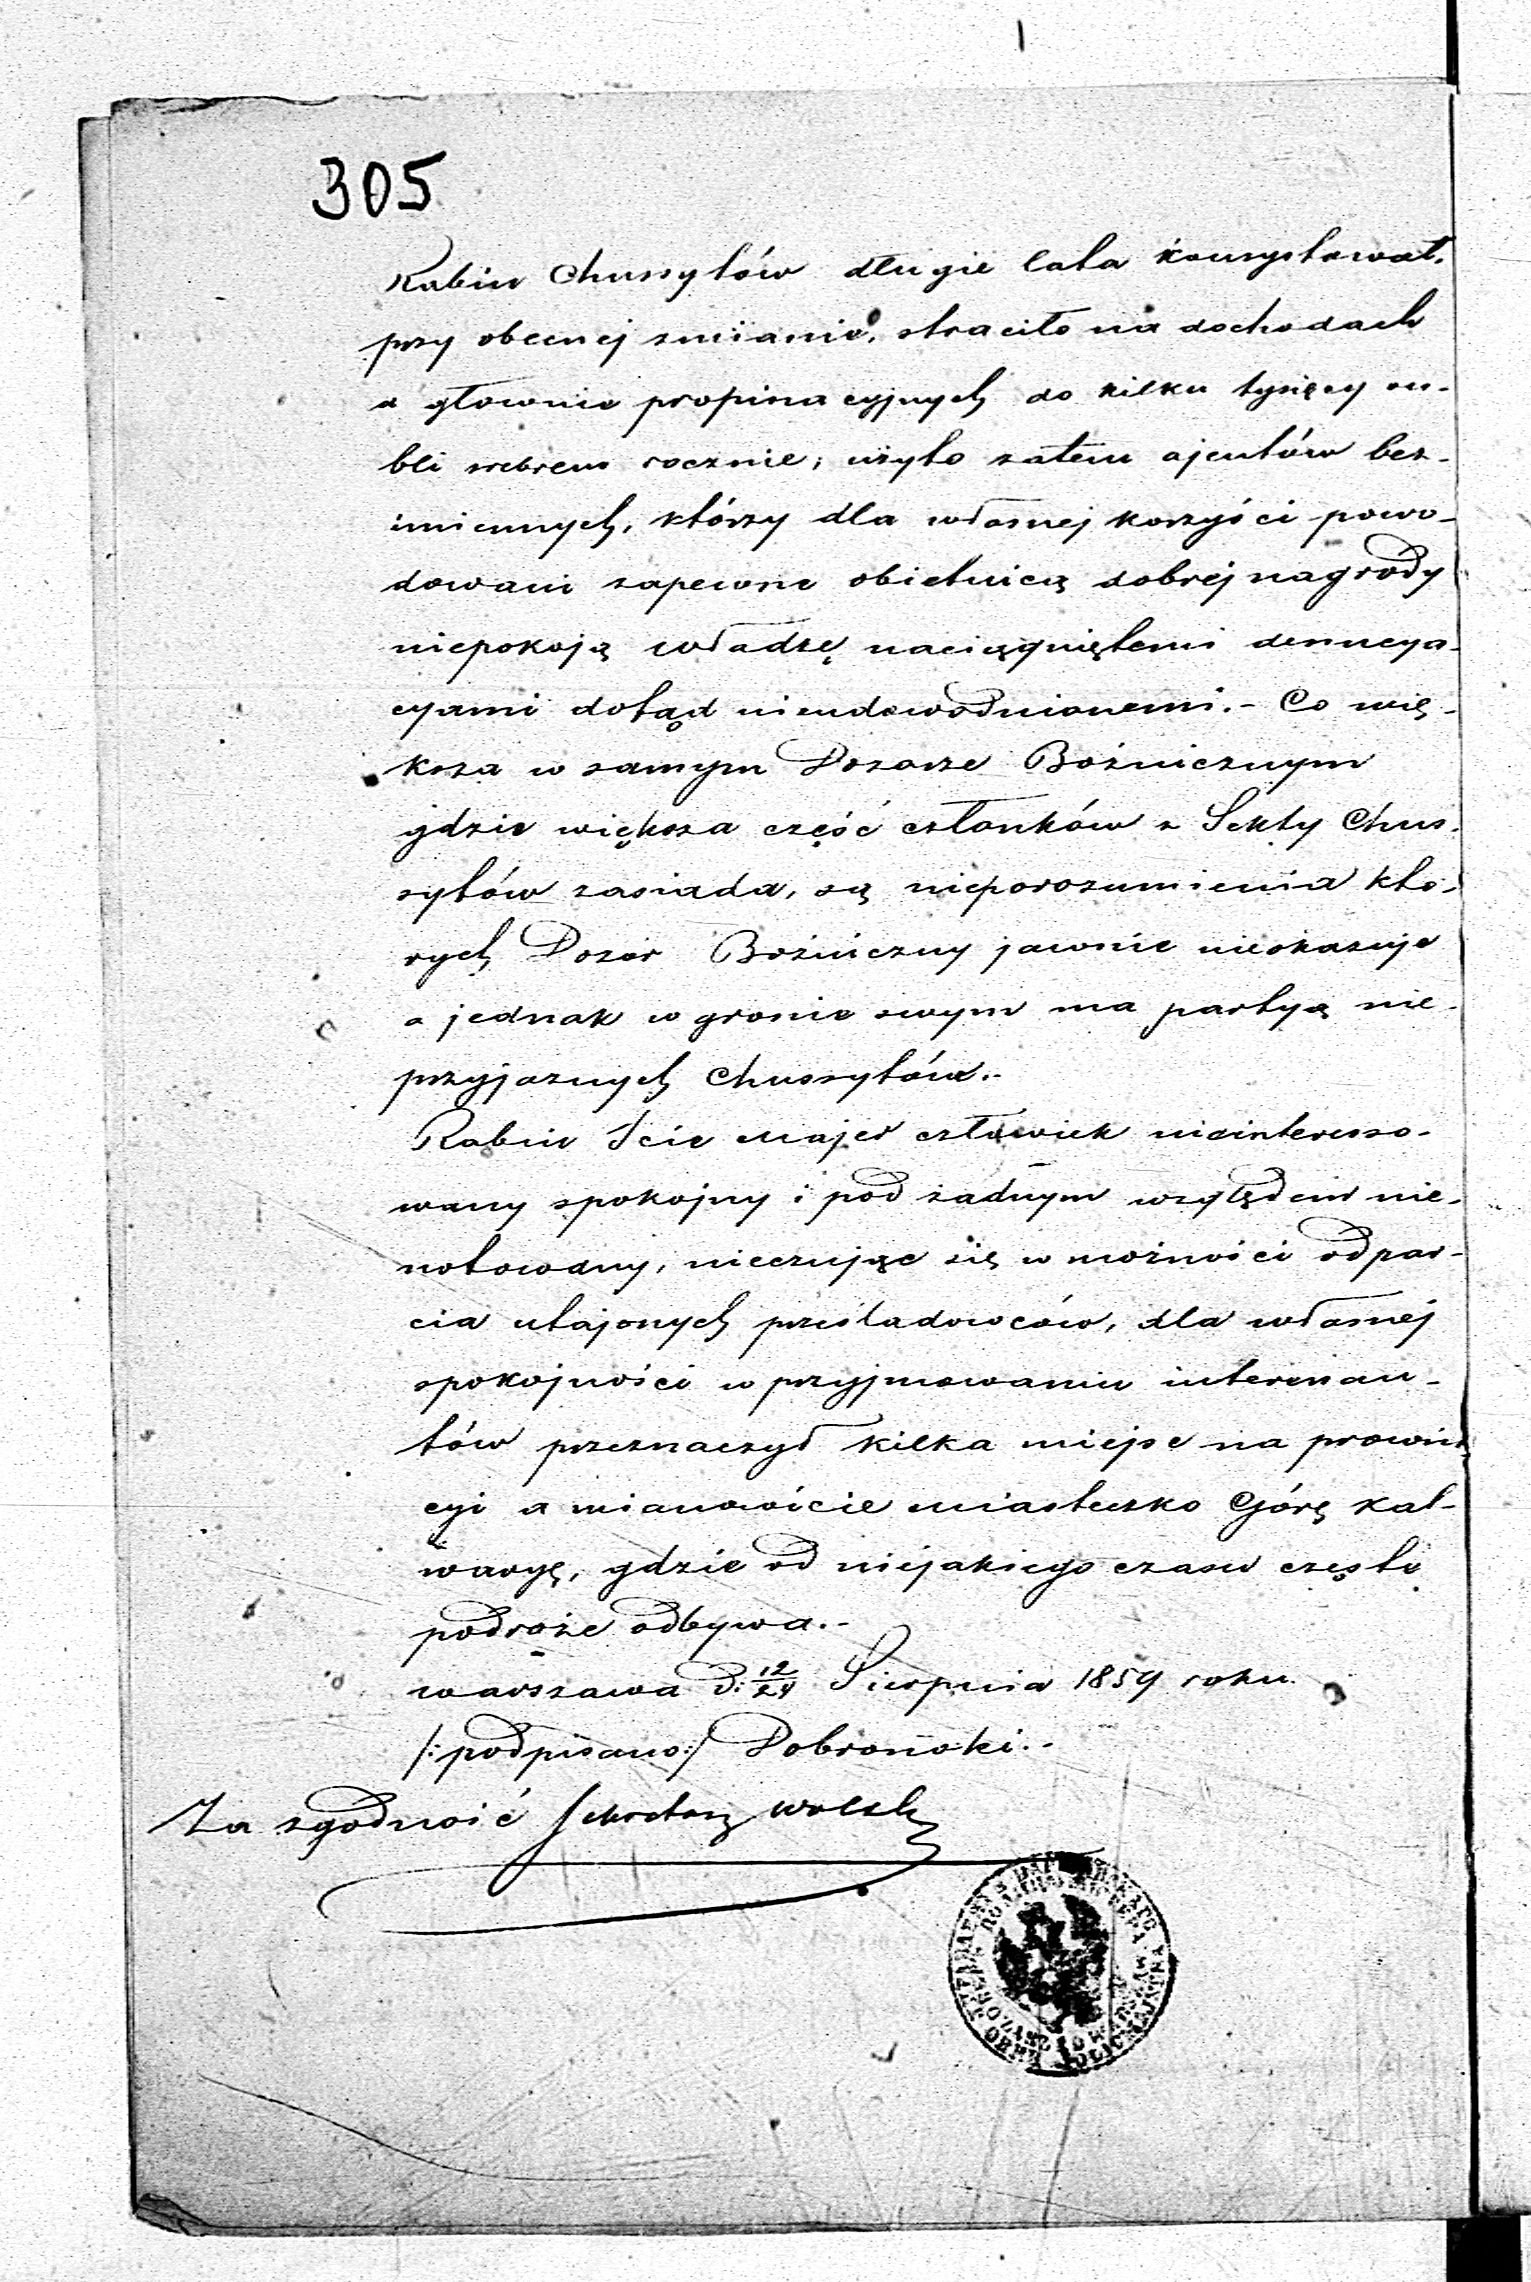 305
Rabin Chussytów długie lata konsystował.
przy obecnej zmianie, straciło na dochodach
a głownie propinacyjnych do kilku tysięcy ru-
bli srebrem rocznie; użyto zatem ajentów bez-
imiennych, którzy dla własnej korzyści powo-
dowani zapewne obietnicą dobréj nagrody
niepokoją władzę naciągniętemi denucya-
cyami dotąd nieudowodnionemi.- Co wię-
ksza w samym Dozorze Bożnicznym
gdzie większa część członków z Sekty Chus-
sytów zasiada, są nieporozumienia któ-
rych Dozór Bożniczny jawnie nieokazuje
a jednak w gronie swym ma partyą nie-
przyjaznych Chussytów.-
Rabin Icie Majer człowiek nieinteresso-
wany spokojny i pod żadnym względem nie-
notowany, nieczując się w możności odpar-
cia utajonych prześladowców, dla własnéj
spokojności w przyjmowaniu interesan-
tów przeznaczył kilka miejsc na prowin-
cyi a mianowicie miasteczko Górę Kal-
waryę, gdzie od niejakiego czasu częste
podroże odbywa.-
Warszawa d: 12/24 Sierpnia 1859 roku
/:podpisano:/ Dobronoki.-
Za zgodność Sekretarz Wolski